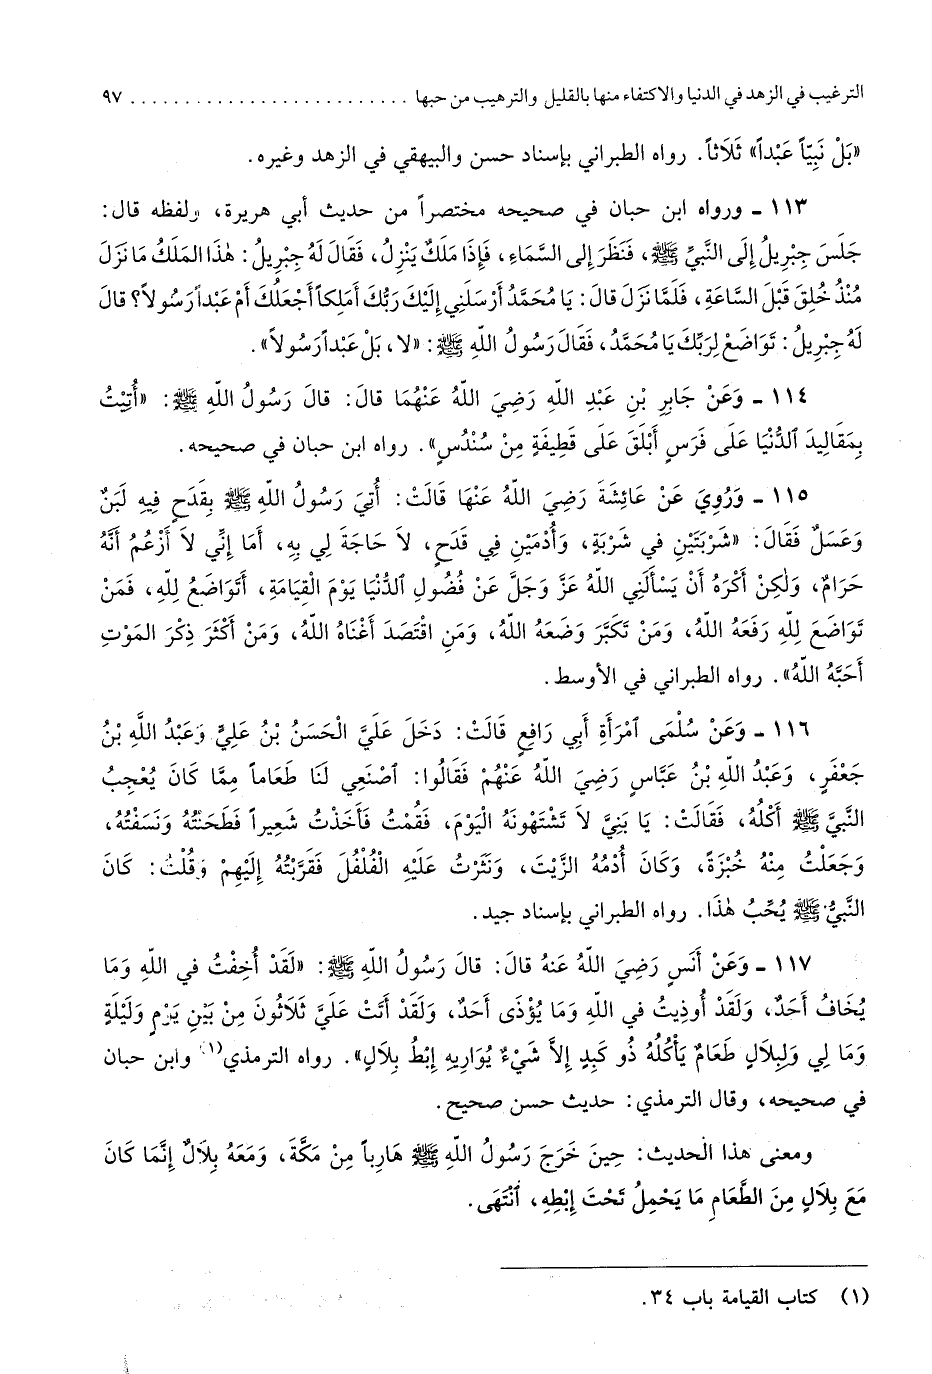 الترغيب في الزهد في الدنيا والاكتفاء منها بالقليل والترهيب من حبها .......................... ٩٧
«بَلْ نَبِيّاً عَبْداً» ثَلَاثاً. رواه الطبراني بإسناد حسن والبيهقي في الزهد وغيره.
١١٣ ـ ورواه ابن حبان في صحيحه مختصراً من حديث أبي هريرة، ولفظه قال:
جَلَسَ جِبْرِيلُ إِلَى النَّبِيِّ ﷺ، فَنَظَرَ إِلى السَّمَاءِ، فَإِذَا مَلَكٌ يَنْزِلُ، فَقَالَ لَهُ جِبْرِيلُ: هٰذَا المَلَكُ مَا نَزَلَ
مُنْذُ خُلِقَ قَبْلَ السَّاعَةِ، فَلَمَّا نَزَلَ قَالَ: يَا مُحَمَّدُ أَرْسَلَنِي إِلَيْكَ رَبُّكَ أَمَلِكاً أَجْعَلُكَ أَمْ عَبْداً رَسُولاً؟ قالَ
لَهُ جِبْرِيلُ: تَوَاضَعْ لِرَبِّكَ يَا مُحَمَّدُ، فَقَالَ رَسُولُ اللّهِ ﷺ: «لا، بَلْ عَبْداً رَسُولاً».
١١٤ ـ وَعَنْ جَابِرِ بْنِ عَبْدِ اللّهِ رَضِيَ اللّهُ عَنْهُمَا قالَ: قالَ رَسُولُ اللّهِ ﷺ: «أُتِيْتُ
بِمَقَالِيدَ ٱلدُّنْيَا عَلَى فَرَسٍ أَبْلَقَ عَلَى قَطِيفَةٍ مِنْ سُنْدُسٍ». رواه ابن حبان في صحيحه.
١١٥ ـ وَرُوِيَ عَنْ عَائِشَةَ رَضِيَ اللّهُ عَنْهَا قَالَتْ: أُتِيَ رَسُولُ اللّهِ ﷺ بِقَدَحٍ فِيهِ لَبَنٌ
وَعَسَلٌ فَقَالَ: «شَرْبَتَيْنِ في شَرْبَةٍ، وَأُدْمَيْنِ فِي قَدَحٍ، لاَ حَاجَةَ لِي بِهِ، أَمَا إِنِّي لاَ أَزْعُمُ أَنَّهُ
حَرَامٌ، وَلٰكِنْ أَكْرَهُ أَنْ يَسْأَلَنِي اللّهُ عَزَّ وَجَلَّ عَنْ فُضُولِ ٱلدُّنْيَا يَوْمَ الْقِيَامَةِ، أَتَوَاضَعُ لِلّهِ، فَمَنْ
تَوَاضَعَ لِلّهِ رَفَعَهُ اللّهُ، وَمَنْ تَكَبَّرَ وَضَعَهُ اللّهُ، وَمَنِ اقْتَصَدَ أَغْنَاهُ اللّهُ، وَمَنْ أَكْثَرَ ذِكْرَ المَوْتِ
أَحَبَّهُ اللّهُ». رواه الطبراني في الأوسط.
١١٦ ـ وَعَنْ سُلْمَى ٱمْرَأَةِ أَبِي رَافِعٍ قَالَتْ: دَخَلَ عَلَيَّ الْحَسَنُ بْنُ عَلِيٍّ وَعَبْدُ اللّهِ بْنُ
جَعْفَرٍ، وَعَبْدُ اللّهِ بْنُ عَبَّاسٍ رَضِيَ اللّهُ عَنْهُمْ فَقَالُوا: ٱصْنَعِي لَنَا طَعَاماً مِمَّا كَانَ يُعْجِبُ
النَّبيَّ ﷺ أَكْلُهُ، فَقَالَتْ: يَا بَنِيَّ لاَ تَشْتَهُونَهُ الْيَوْمَ، فَقُمْتُ فَأَخَذْتُ شَعِيراً فَطَحَنْتُهُ وَنَسَفْتُهُ،
وَجَعَلْتُ مِنْهُ خُبْزَةً، وَكَانَ أُدْمُهُ الزَّيْتَ، وَنَثَرْتُ عَلَيْهِ الْفُلْفُلَ فَقَرَّبْتُهُ إِلَيْهِمْ وَقُلْتُ: كَانَ
النَّبيُّ ﷺ يُحِّبُ هٰذَا. رواه الطبراني بإسناد جيد.
١١٧ ـ وَعَنْ أَنَسٍ رَضِيَ اللّهُ عَنهُ قالَ: قالَ رَسُولُ اللّهِ ﷺ: «لَقَدْ أُخِفْتُ في اللّهِ وَمَا
يُخَافُ أَحَدٌ، وَلَقَدْ أُوذِيتُ في اللّهِ وَمَا يُؤْذَى أَحَدٌ، وَلَقَدْ أَتَتْ عَلَيَّ ثَلَاثُونَ مِنْ بَيْنِ يَوْمٍ وَلَيْلَةٍ
وَمَا لِي وَلِبِلاَلٍ طَعَامٌ يَأْكُلُهُ ذُو كَبِدٍ إِلاَّ شَيْءٌ يُوَارِيهِ إِبْطُ بِلاَلٍ». رواه الترمذي(١) وابن حبان
في صحيحه، وقال الترمذي: حديث حسن صحيح.
ومعنى هذا الحديث: حِينَ خَرَجَ رَسُولُ اللّهِ ﷺ هَارِباً مِنْ مَكَّةَ، وَمَعَهُ بِلاَلٌ إِنَّمَا كَانَ
مَعَ بِلاَلٍ مِنَ الطَّعَامِ مَا يَحْمِلُ تَحْتَ إِبْطِهِ، ٱنْتَهَى.
(١) كتاب القيامة باب ٣٤.